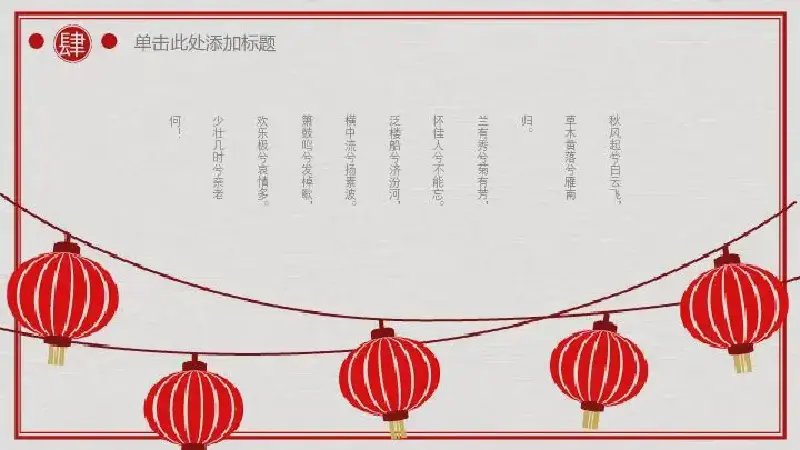 肆
单击此处添加标题
秋风起兮白云飞，
草木黄落兮雁南
归。
兰有秀兮菊有芳，
怀佳人兮不能忘。
泛楼船兮济汾河，
横中流兮扬素波。
箫鼓鸣兮发棹歌，
欢乐极兮哀情多。
少壮几时兮奈老
何！